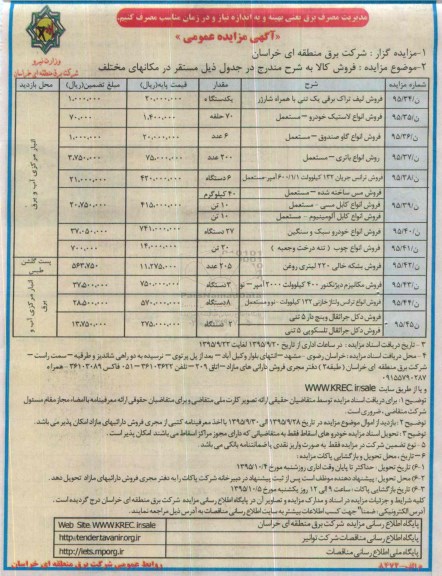 مدیریت مصرف برق یعنی بهینه و به اندازه نیاز و در زمان مناسب مصرف کنیم.
«آگهی مزایده عمومی»
وزارت نیرو
شرکت برق منطقه ای خراسان
۱-مزایده گزار : شرکت برق منطقه ای خراسان
۲-موضوع مزایده : فروش کالا به شرح مندرج در جدول ذیل مستقر در مکانهای مختلف
شماره مزایده شرح مقدار قیمت پایه(ریال) مبلغ تضمین(ریال) محل بازدید
۹۵/۳۴/ن فروش لیف تراک برقی یک تنی با همراه شارژر یکدستگاه ۲۰،۰۰۰،۰۰۰ ۱،۰۰۰،۰۰۰
۹۵/۳۵/ن فروش انواع لاستیک خودرو – مستعمل ۷۰ حلقه ۱،۴۰۰،۰۰۰ ۷۰،۰۰۰
۹۵/۳۶/ن فروش انواع گاوصندوق – مستعمل ۶ عدد ۲۰،۰۰۰،۰۰۰ ۱،۰۰۰،۰۰۰
۹۵/۳۷/ن فروش انواع باتری – مستعمل ۳۰۰ عدد ۷۵،۰۰۰،۰۰۰ ۳،۷۵۰،۰۰۰
۹۵/۳۸/ن فروش ترانس جریان ۱۳۲ کیلوولت ۶۰۰/۱/۱ آمپر-مستعمل ۶ دستگاه ۴۲۰،۰۰۰،۰۰۰ ۲۱،۰۰۰،۰۰۰
۹۵/۳۹/ن فروش مس ساخته شده – مستعمل ۴۰ کیلوگرم
فروش انواع کابل مسی – مستعمل ۱۰ تن ۴۱۵،۰۰۰،۰۰۰ ۲۰،۷۵۰،۰۰۰
فروش انواع کابل آلومینیوم – مستعمل ۱۰ تن
۹۵/۴۰/ن فروش انواع خودرو سبک و سنگین ۲۷ دستگاه ۷۴۱،۰۰۰،۰۰۰ ۳۷،۰۵۰،۰۰۰
۹۵/۴۱/ن فروش انواع چوب ( تنه درخت وجعبه ) ۲۰ تن ۱۴،۰۰۰،۰۰۰ ۷۰۰،۰۰۰
انبار مرکزی آب و برق
۹۵/۴۲/ن فروش بشکه خالی ۲۲۰ لیتری روغن ۲۰۵ عدد ۱۱،۲۷۵،۰۰۰ ۵۶۳،۷۵۰ پست گلشن طبس
۹۵/۴۳/ن فروش مکانیزم دیژنکتور ۴۰۰ کیلوولت ۲۰۰۰ آمپر – نو ۳ دستگاه ۷۵۰،۰۰۰،۰۰۰ ۳۷،۵۰۰،۰۰۰
۹۵/۴۴/ن فروش انواع ترانس ولتاژ خازنی ۱۳۲ کیلوولت – نو و مستعمل ۸ دستگاه ۵۷۰،۰۰۰،۰۰۰ ۲۸،۵۰۰،۰۰۰
۹۵/۴۵/ن فروش دکل جراثقال وینچ دار ۵ تنی
فروش دکل جراثقال تلسکوپی ۵ تنی ۲ دستگاه ۲۷۵،۰۰۰،۰۰۰ ۱۳،۷۵۰،۰۰۰
انبار مرکزی آب و برق
۳ – تاریخ دریافت اسناد مزایده : در ساعات اداری از تاریخ ۱۳۹۵/۹/۲۰ لغایت ۱۳۹۵/۹/۲۲
۴ – محل دریافت اسناد مزایده : خراسان رضوی – مشهد – انتهای بلوار وکیل آباد – بعد از پل پرتوی – نرسیده به دو راهی شاندیز و طرقبه – سمت راست – شرکت برق منطقه ای خراسان ( طبقه ۲ ) دفتر مجری فروش دارائی های مازاد – اتاق ۲۰۹ – تلفن ۳۶۱۰۳۶۲۲-۰۵۱ فاکس ۳۶۱۰۳۰۸۹ – همراه ۰۹۱۵۵۷۹۰۲۸۷
و یا از طریق سایت WWW.KREC.ir.sale
توضیح ۱: برای دریافت اسناد مزایده توسط متقاضیان حقیقی ارائه تصویر کارت ملی متقاضی و برای متقاضیان حقوقی ارائه معرفینامه با امضاء مجاز مقام مسئول شرکت متقاضی، ضروری است.
توضیح ۲: بازدید از اموال موضوع مزایده در تاریخ ۱۳۹۵/۹/۲۸ الی ۱۳۹۵/۹/۳۰ با اخذ معرفینامه کتبی از مجری فروش دارائیهای مازاد امکان پذیر می باشد.
توضیح ۳: تحویل اسناد مزایده خودرو های اسقاط فقط به متقاضیانی که دارای مجوز مراکز اسقاط می باشند امکان پذیر است.
۵ – نوع تضمین شرکت در مزایده فقط به صورت واریز نقدی یا ضمانتنامه بانکی می باشد.
۶ – تاریخ ، محل تحویل و بازگشایی پاکات مزایده :
۶-۱) تاریخ تحویل : حداکثر تا پایان وقت اداری روز شنبه مورخ ۱۳۹۵/۱۰/۴
۶-۲) محل تحویل : پیشنهاد دهنده موظف است پس از ثبت پیشنهاد در دبیرخانه شرکت پاکات را به دفتر مجری فروش دارائیهای مازاد تحویل دهد.
۶-۳) تاریخ بازگشایی پاکات : ساعت ۹ الی ۱۲ روز یکشنبه مورخ ۱۳۹۵/۱۰/۵
کلیه شرایط و جزئیات مزایده در اسناد و مدارک مزایده و تصاویر آن در پایگاه اطلاع رسانی مزایده شرکت برق منطقه ای خراسان درج گردیده است.
آدرس الکترونیکی : ضمنا" جهت کسب اطلاعات بیشتر به سایت اطلاع رسانی مناقصات به آدرس ذیل مراجعه نمایند.
پایگاه اطلاع رسانی مزایده شرکت برق منطقه ای خراسان Web Site: WWW.KREC.ir.sale
پایگاه اطلاع رسانی مناقصات شرکت توانیر http://tender.tavanir.org.ir
پایگاه ملی اطلاع رسانی مناقصات http://iets.mporg.ir
روابط عمومی شرکت برق منطقه ای خراسان
م الف ۸۴۷۴